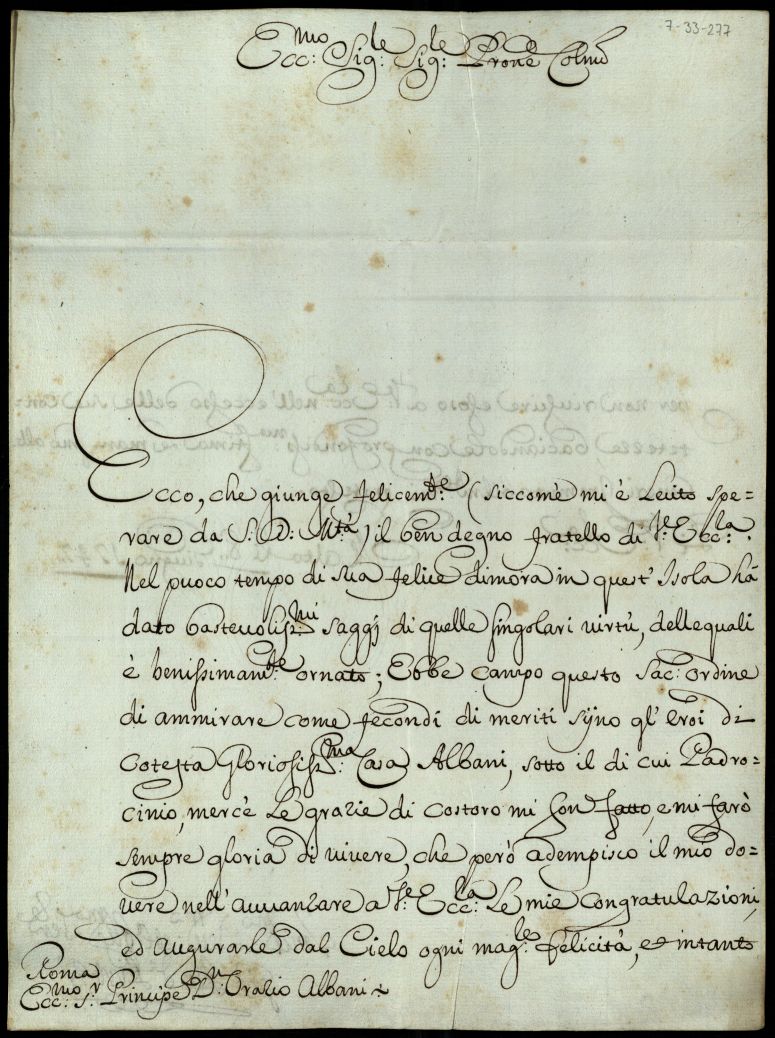 7-33-277
Ecc:mo Sig:le Sig:le Prone Colmo
Ecco, che giunge felicem:te (siccome mi è Lecito spe=
rare da S: D: M:tà) il ben degno fratello di V:e Ecc:la.
Nel puoco tempo di sua felice dimora in quest' Isola há
dato bastevolis:mi saggj di quelle singolari virtù, dellequali
è benissimam:te ornato; Ebbe campo questo Sac: ordine
di ammirare come fecondi di meriti sijno gl' Eroi di
Cotesta Gloriosis:ma Casa Albani, sotto il di cui Padro=
cinio, mercè Le grazie di Costoro mi son fatto, e mi farò
sempre gloria di vivere, che però adempisco il mio do=
vere nell' avvanzare a V:e Ecc:la Le mie Congratulazioni,
ed augurarle dal Cielo ogni mag:le felicità, et intanto
Roma
Ecc:mo S:r Principe D:n Orazio Albani